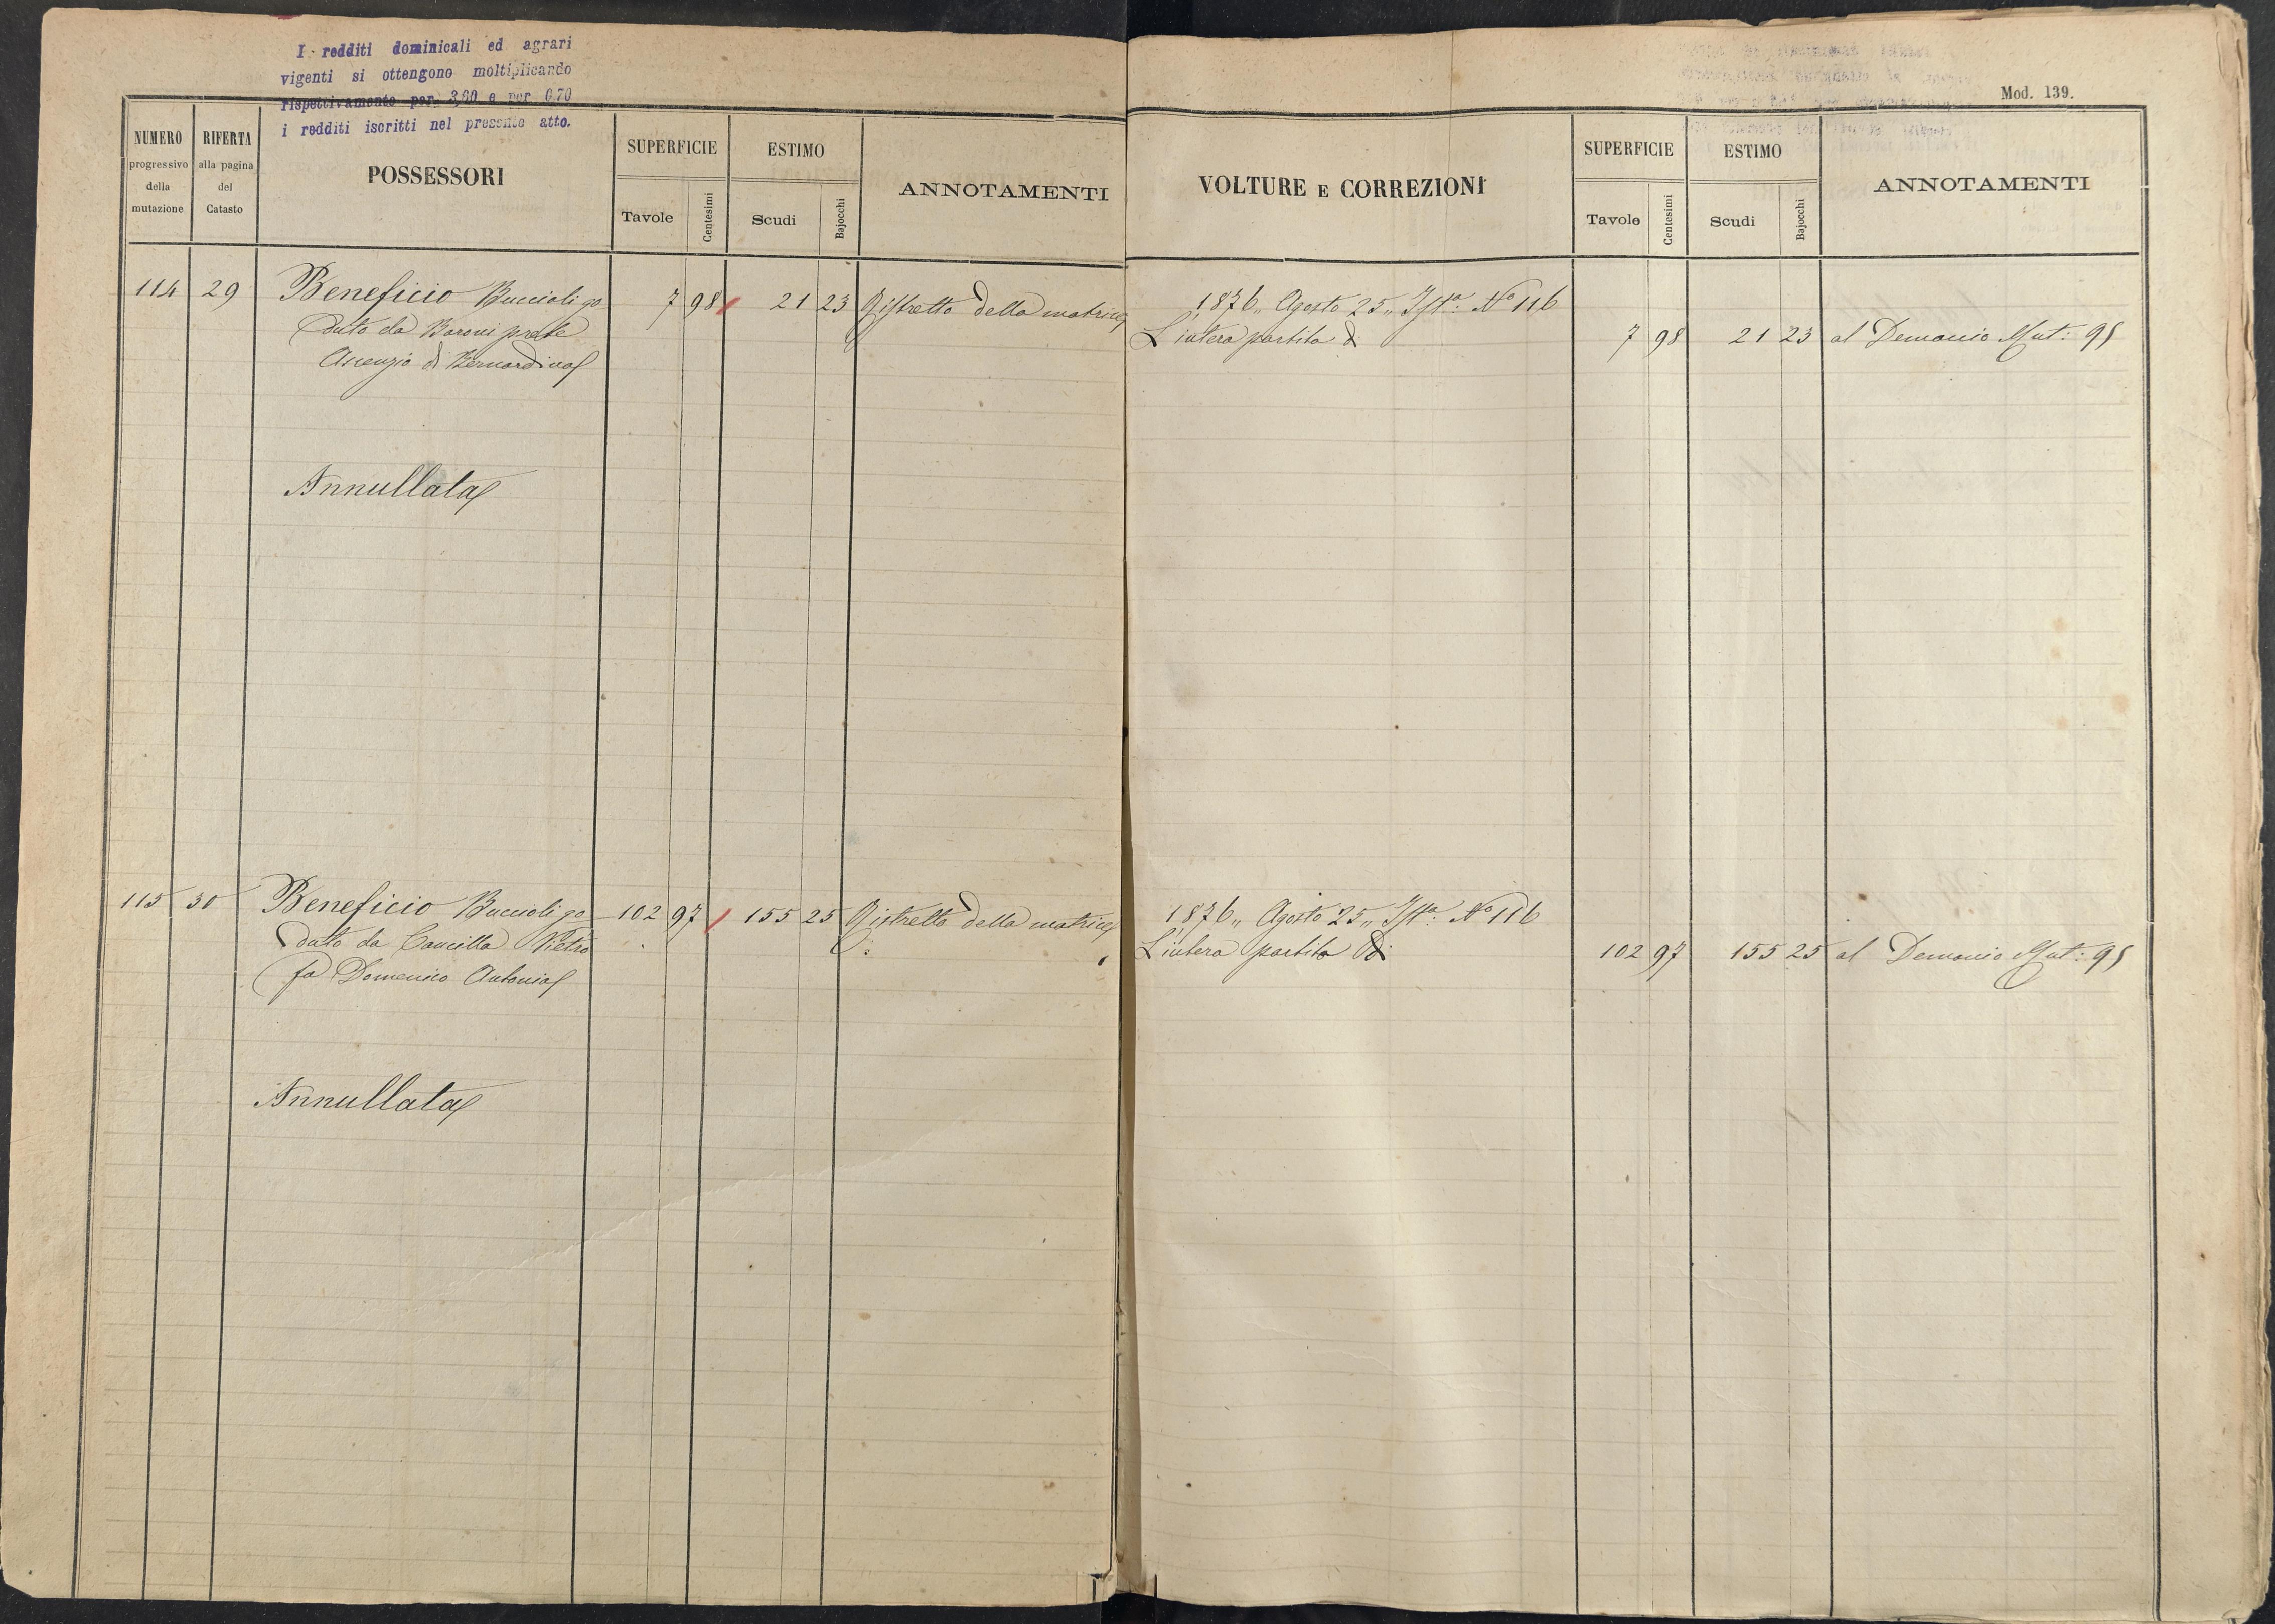 I redditi dominicali ed agrari
vigenti si ottengono moltiplicando
rispettivamente per 3,60 e per 0.70
i redditi iscritti nel presente atto.
Mod. 139.
NUMERO
progressivo
della
mutazione
RIFERTA
alla pagina
del
Catasto
POSSESSORI
SUPERFICIE
Tavole
Centesimi
ESTIMO
Scudi
Bajocchi
ANNOTAMENTI
VOLTURE E CORREZIONI
SUPERFICIE
Tavole
Centesimi
ESTIMO
Scudi
Bajocchi
ANNOTAMENTI
114 29 Beneficio Buccioli go 7 98 21 23 Ristretto della matrice
duto da Baroni prete
Ascenzio di Bernardino
Annullata
1876,, Agosto 25,, Ista: No 116
L'intera partita di 7 98 21 23 al Demanio Mut: 95
115 30 Beneficio Buccioli go 102 97 155 25 Ristretto della matrice
duto da Cancilla Pietro
fu Domenico Antonio
Annullata
1876,, Agosto 25,, Ista: No 116
L'intera partita di 102 97 155 25 al Demanio Mut: 95